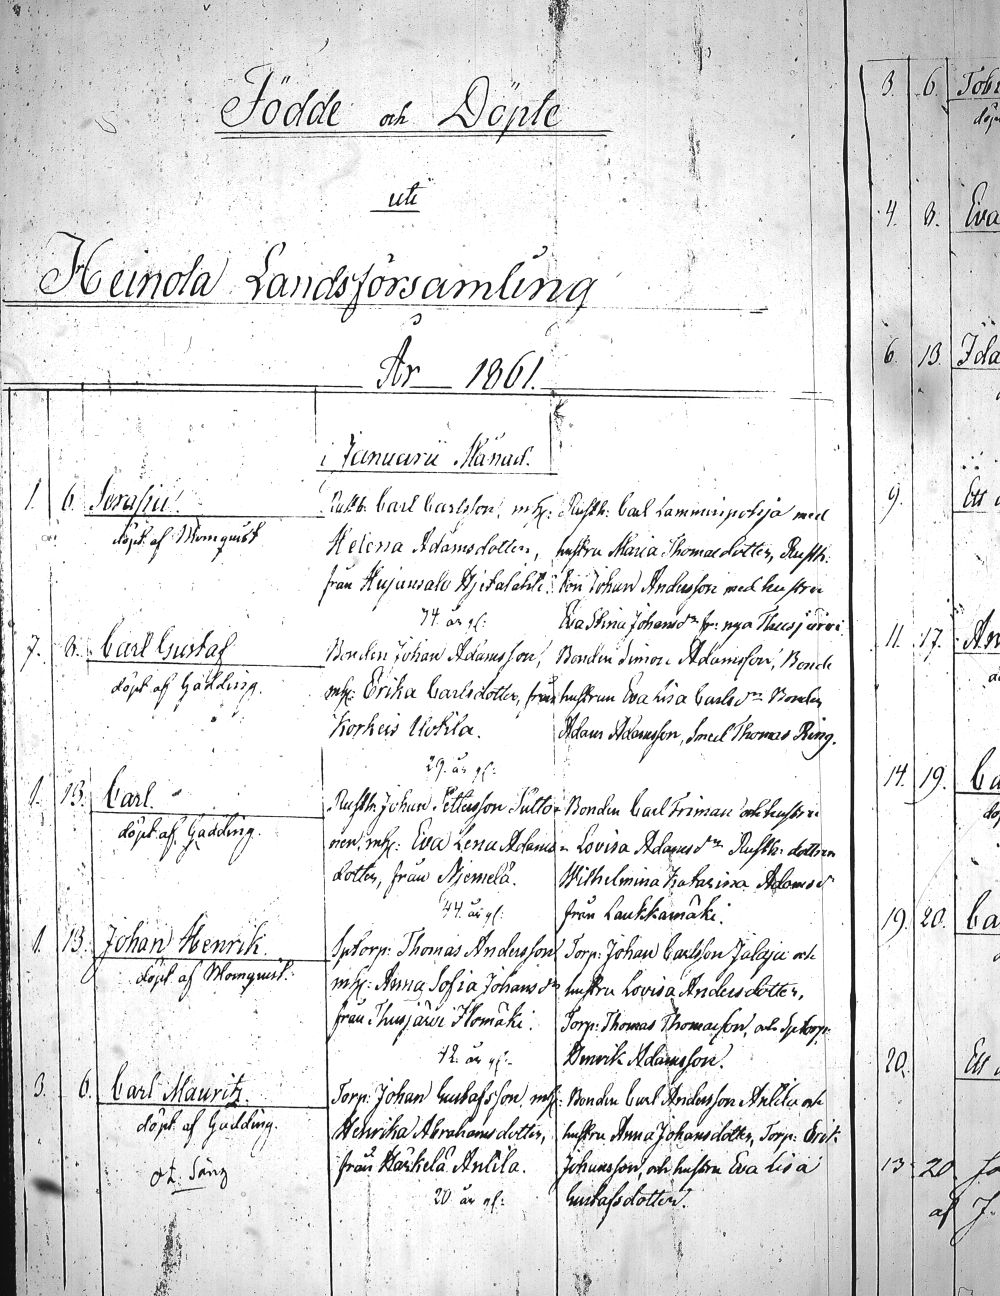 Födde och Döpte
uti
Heinola Landsförsamling
År 1861.
i Januarii Månad.
1. 6. Serafia
döpt af Momquist
Rusth. Carl Carlsson, m. h:
Helena Adamsdotter,
från
34. år gl:
Rusth: Carl Lamminpohja med
hustru Maria Thomasdotter, Rusth:
Johan Andersson med hustru
Eva Stina Johansdr fr: nya Thusjärvi
7. 8. Carl Gustaf
döpt af Gadding.
Bonden Johan Adamsson,
m. h: Erika Carlsdotter, från
Korkeis Uotila.
29. år gl:
Bonden Simon Adamsson, Bonde
hustrun Eva Lisa Carlsdr Bonden
Adam Adamsson, Smed Thomas Ring.
1. 13. Carl.
döpt af Gadding.
Rusth: Johan Pettersson Sutto-
nen, m. h: Eva Lena Adams-
dotter, från Niemelä.
44. år gl:
Bonden Carl Friman och hustru
Lovisa Adamsdr Rusth: dottren
Wilhelmina Katarina Adamsdr
från Laukkamäki.
1. 13. Johan Henrik.
döpt af Momquist.
Sptorp: Thomas Andersson
m. h: Anna Sofia Johansdr
från Thusjärvi Homäki.
42. år gl:
Torp: Johan Carlsson Jalaja och
hustru Lovisa Andersdotter,
Torp: Thomas Thomasson, och Sptorp:
Henrik Adamsson.
3. 6. Carl Mauritz.
döpt af Gadding.
Torp: Johan Gustafsson, m. h:
Henrika Abrahamsdotter,
från Härkelä Anttila.
20. år gl:
Bonden Carl Andersson Anttila och
hustru Anna Johansdotter, Torp: Erik
Johansson, och hustru Eva Lisa
Gustafsdotter.
3. 6.
4. 8. Eva
6. 13. Ida
9. Ett
11. 17.
14. 19.
19. 20.
20. Ett
13. 20
af J.